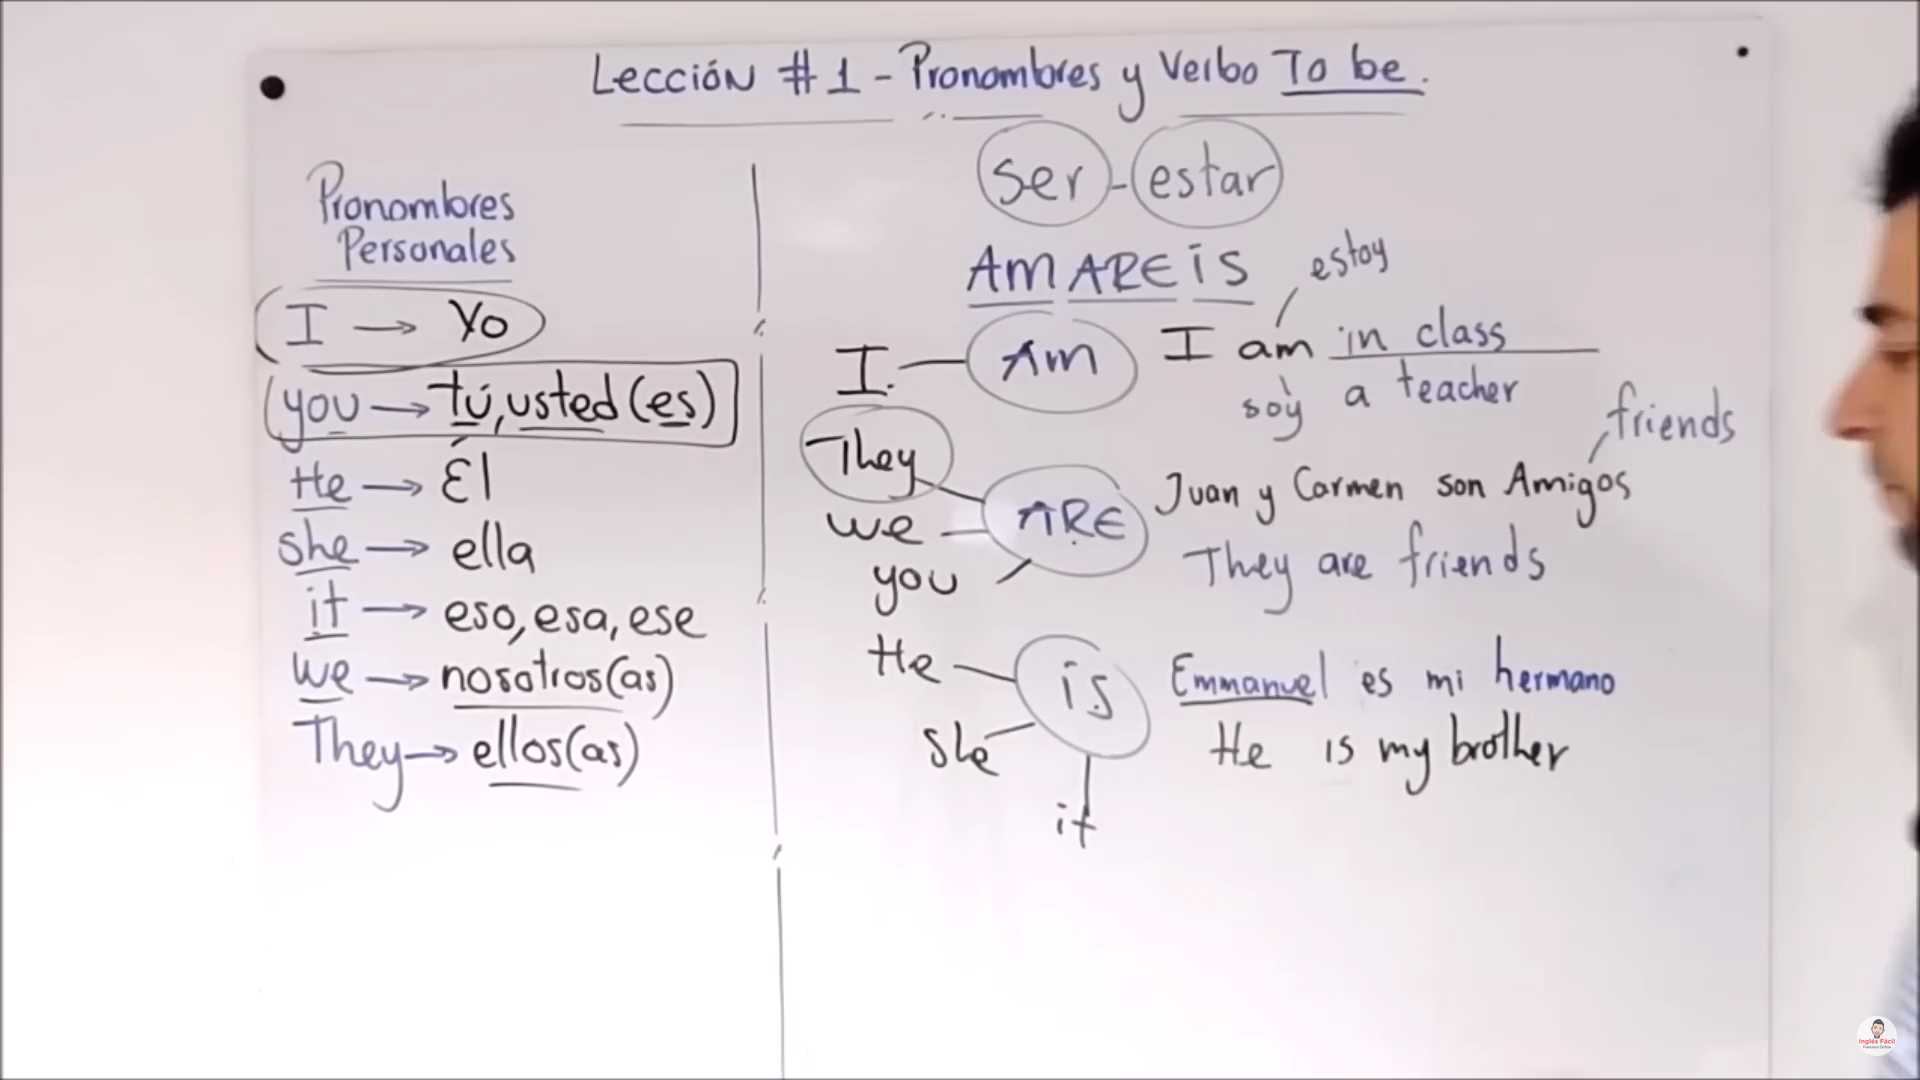 Lección #1 - Pronombres y Verbo To be.
Pronombres
Personales
I → Yo
you → tú, usted (es)
He → Él
she → ella
it → eso, esa, ese
we → nosotros(as)
They → ellos(as)
ser - estar
AM ARE is
estoy
I AM I am in class
soy a teacher
friends
They
we
you
ARE
Juan y Carmen son Amigos
They are friends
He
she
it
is
Emmanuel es mi hermano
He is my brother
Inglés Fácil